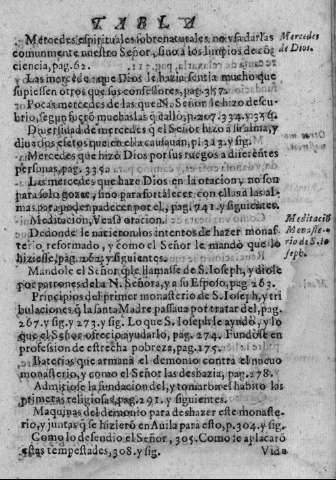 TABLA
Mercedes espirituales sobrenaturales, no vsa darlas
comunmente nuestro Señor, sino à los limpios de cõ
ciencia, pag. 62.
Mercedes
de Dios.
Las mercedes que Dios le hazia sentia mucho que
supiessen otros que sus confessores, pag. 357.
Pocas mercedes de las que N. Señor le hizo descu-
brio, segun
Diuersidad de mercedes q̃ el Señor hizo a su alma, y
diuersos efetos que en ella causauan, p. 313. y sig.
Mercedes que hizo Dios por sus ruegos a diferentes
personas, pag. 335.
Las mercedes que haze Dios en la oracion, no son
para solo gozar, sino para fortalecer con ellas a las al-
mas, para poder padecer por el, pag. 741. y siguientes.
Meditacion, Veasè oracion.
Meditaciõ
Dedonde le nacieron los intentos de hazer monas
terio reformado, y como el Señor le mandò que lo
hiziesse, pag. 262. y siguientes.
Monaste-
rio de S. Io
seph.
Mandole el Señor q̃ le llamasse de S. Ioseph, y diole
por patrones de la N. Señora, y a su Esposo, pag. 263.
Principios del primer monasterio de S. Ioseph, y tri
bulaciones q̃ la santa Madre passaua por tratar del, pag.
267. y sig. y 273. y sig. Lo que S. Ioseph le ayudò, y lo
que el Señor ofrecio ayudarlo, pag. 274. Fundose en
profession de estrecha pobreza, pag. 175.
Baterias que armarà el demonio contra el nueuo
monasterio, y como el Señor las deshazia, pag. 278.
Admitiose la fundacion del, y tomaron el habito las
primeras religiosas, pag. 291. y siguientes.
Maquinas del demonio para deshazer este monaste-
rio, y juntas q̃ se hizierõ en Auila para esto, p. 304. y sig.
Como lo defendio el Señor, 305. Como se aplacarõ
estas tempestades, 308. y sig.
Vida